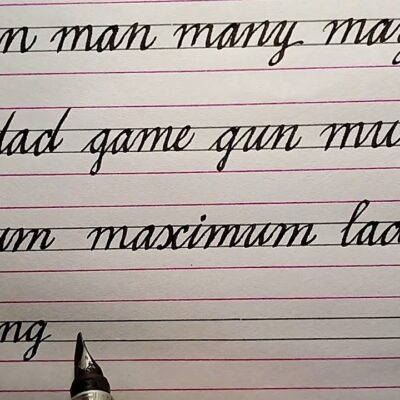 n man many may
dad game gun mu
um maximum lad
ng